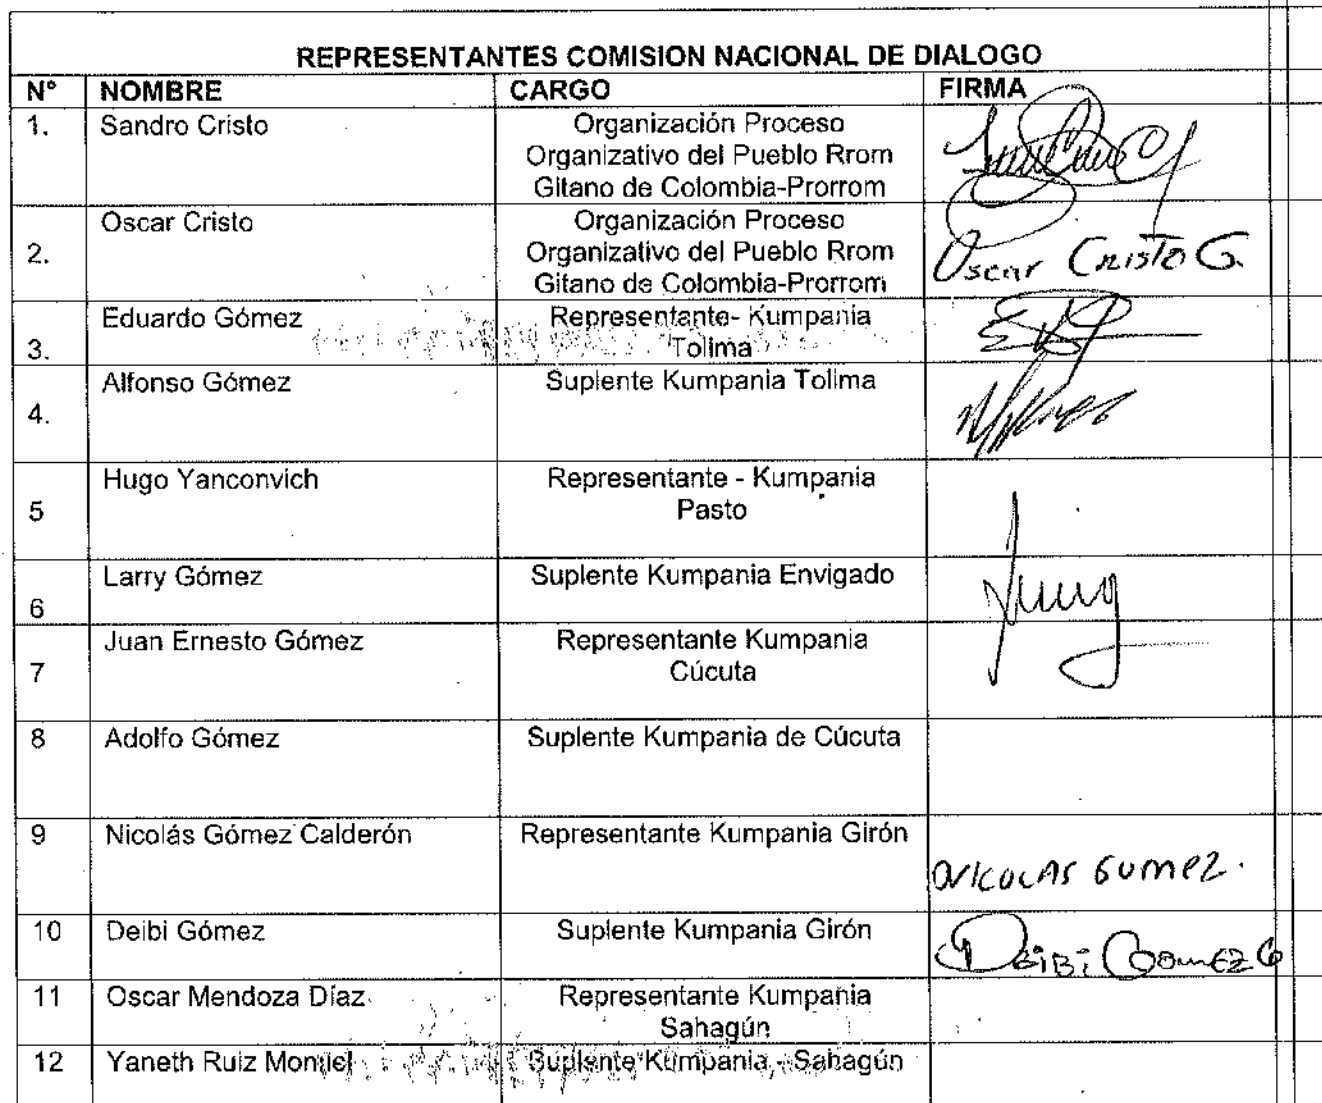 REPRESENTANTES COMISION NACIONAL DE DIALOGO
N° NOMBRE CARGO FIRMA
1. Sandro Cristo Organización Proceso
Organizativo del Pueblo Rrom
Gitano de Colombia-Prorrom
2. Oscar Cristo Organización Proceso
Organizativo del Pueblo Rrom
Gitano de Colombia-Prorrom
Oscar Cristo G.
3. Eduardo Gómez Representante- Kumpania
Tolima
4. Alfonso Gómez Suplente Kumpania Tolima
5 Hugo Yanconvich Representante - Kumpania
Pasto
6 Larry Gómez Suplente Kumpania Envigado
7 Juan Ernesto Gómez Representante Kumpania
Cúcuta
8 Adolfo Gómez Suplente Kumpania de Cúcuta
9 Nicolás Gómez Calderón Representante Kumpania Girón
NICOLAS GOMEZ.
10 Deibi Gómez Suplente Kumpania Girón
DeiBi GOMEZ G
11 Oscar Mendoza Díaz Representante Kumpania
Sahagún
12 Yaneth Ruiz Suplente Kumpania - Sahagún